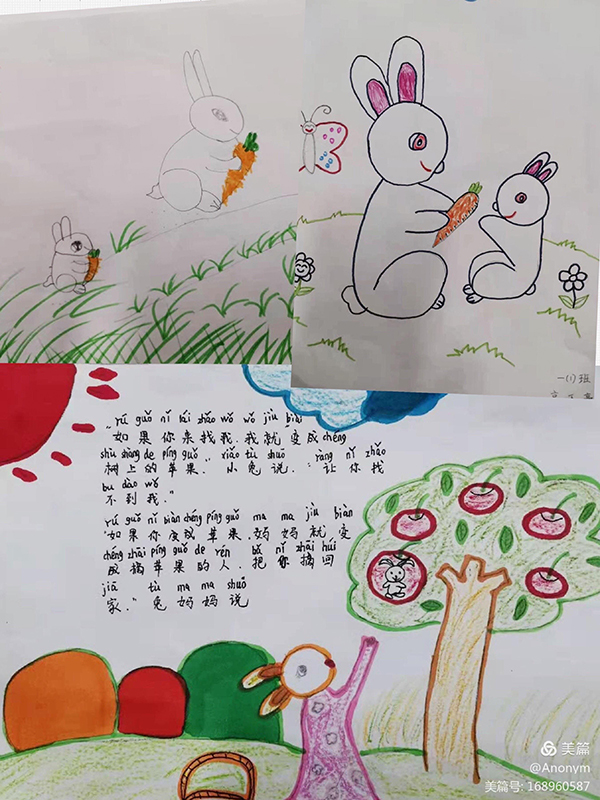 一(1)班
rú guǒ nǐ lái zhǎo wǒ wǒ jiù biàn
"如果你来找我.我就变成 chéng
shù shàng de píng guǒ xiǎo tù shuō ràng nǐ zhǎo
树上的苹果." 小兔说."让你找
bu dào wǒ
不到我."
rú guǒ nǐ biàn chéng píng guǒ ma ma jiù biàn
"如果你变成苹果.妈妈就变
chéng zhāi píng guǒ de rén bǎ nǐ zhāi huí
成摘苹果的人.把你摘回
jiā tù ma ma shuō
家."兔妈妈说
美篇
@Anonym
美篇号: 168960587